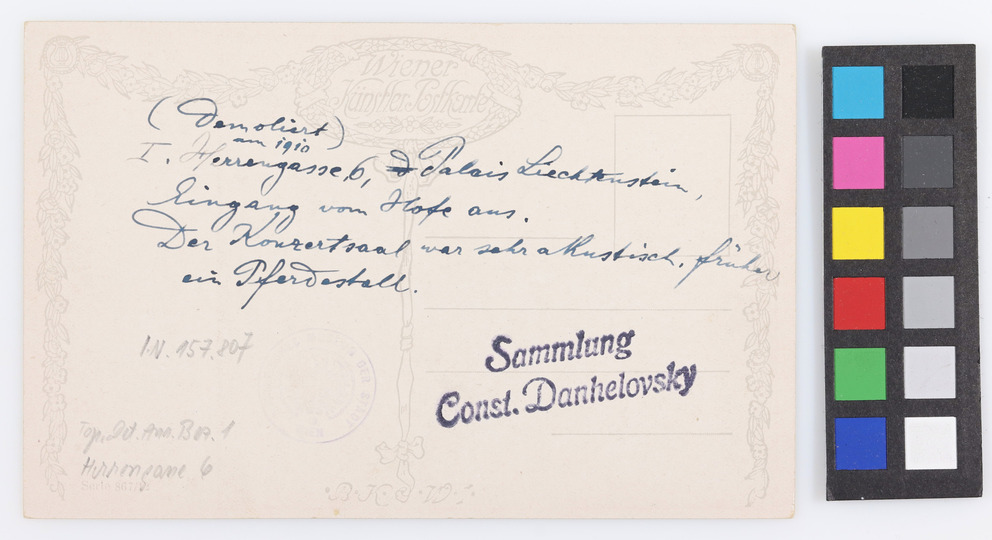 Wiener
Künstler Postkarte
(Demoliert)
am 1910
I. Herrengasse 6, Palais Liechtenstein,
Eingang vom Hofe aus.
Der Konzertsaal war sehr akustisch, früher
ein Pferdestall.
I.N. 157.807
Sammlung
Const. Danhelovsky
Top. Bez. 1
Herrengasse 6
Serie 867/
B.K.W.I.